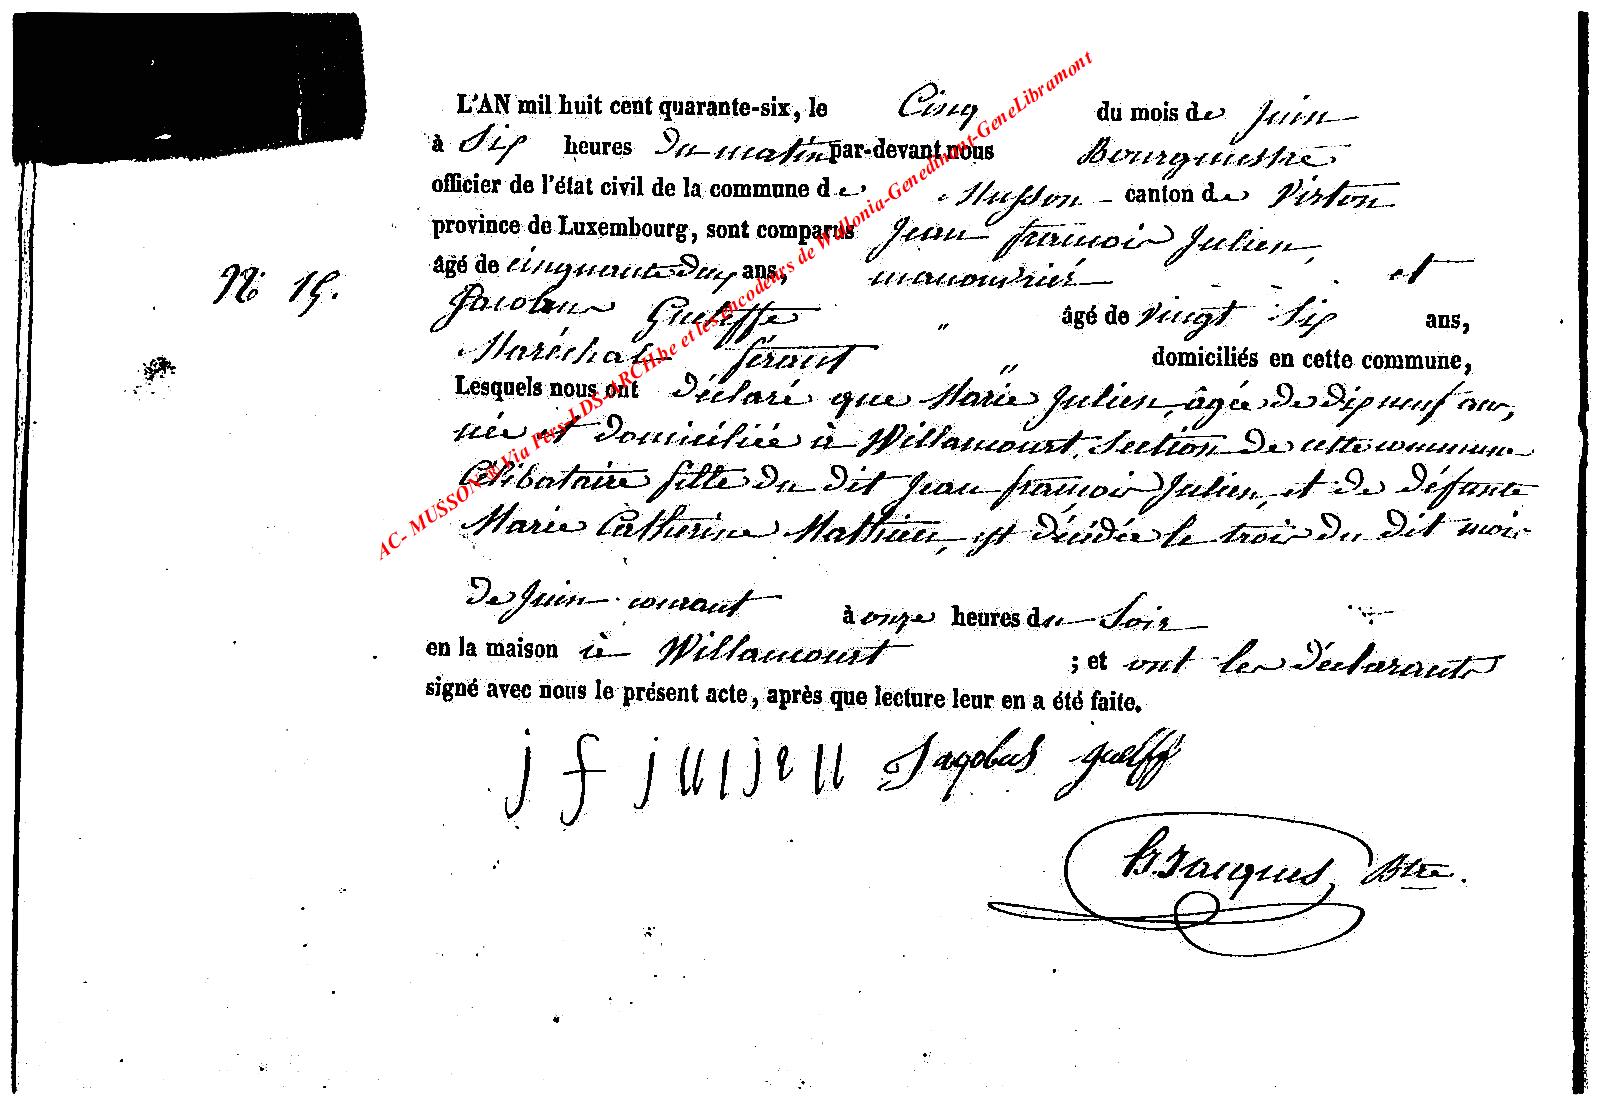 L'AN mil huit cent quarante-six, le Cinq du mois de Juin
à Six heures du matin par-devant nous Bourgmestre
officier de l'état civil de la commune de Musson - canton de Virton
province de Luxembourg, sont comparus Jean françois Julien,
âgé de cinquante deux ans, manouvrier et
N° 15.
Jacobus Guelffe " âgé de vingt Six ans,
Maréchal férant " domiciliés en cette commune,
Lesquels nous ont déclaré que Marie Julien, âgée de dix neuf ans,
née et domiciliée à Willancourt, Section de cette commune
Célibataire fille du dit Jean françois Julien, et de défunte
Marie Catherine Mathieu, est décédée le trois du dit mois
de Juin courant à onze heures du Soir
en la maison à Willancourt ; et ont les déclarants
signé avec nous le présent acte, après que lecture leur en a été faite.
j f julien Jagobus guelff
Jacques Btre.
AC- MUSSON © Via Pers-LDS-ARCH.be et les encodeurs de Wallonia-Genedinant-GeneLibramont